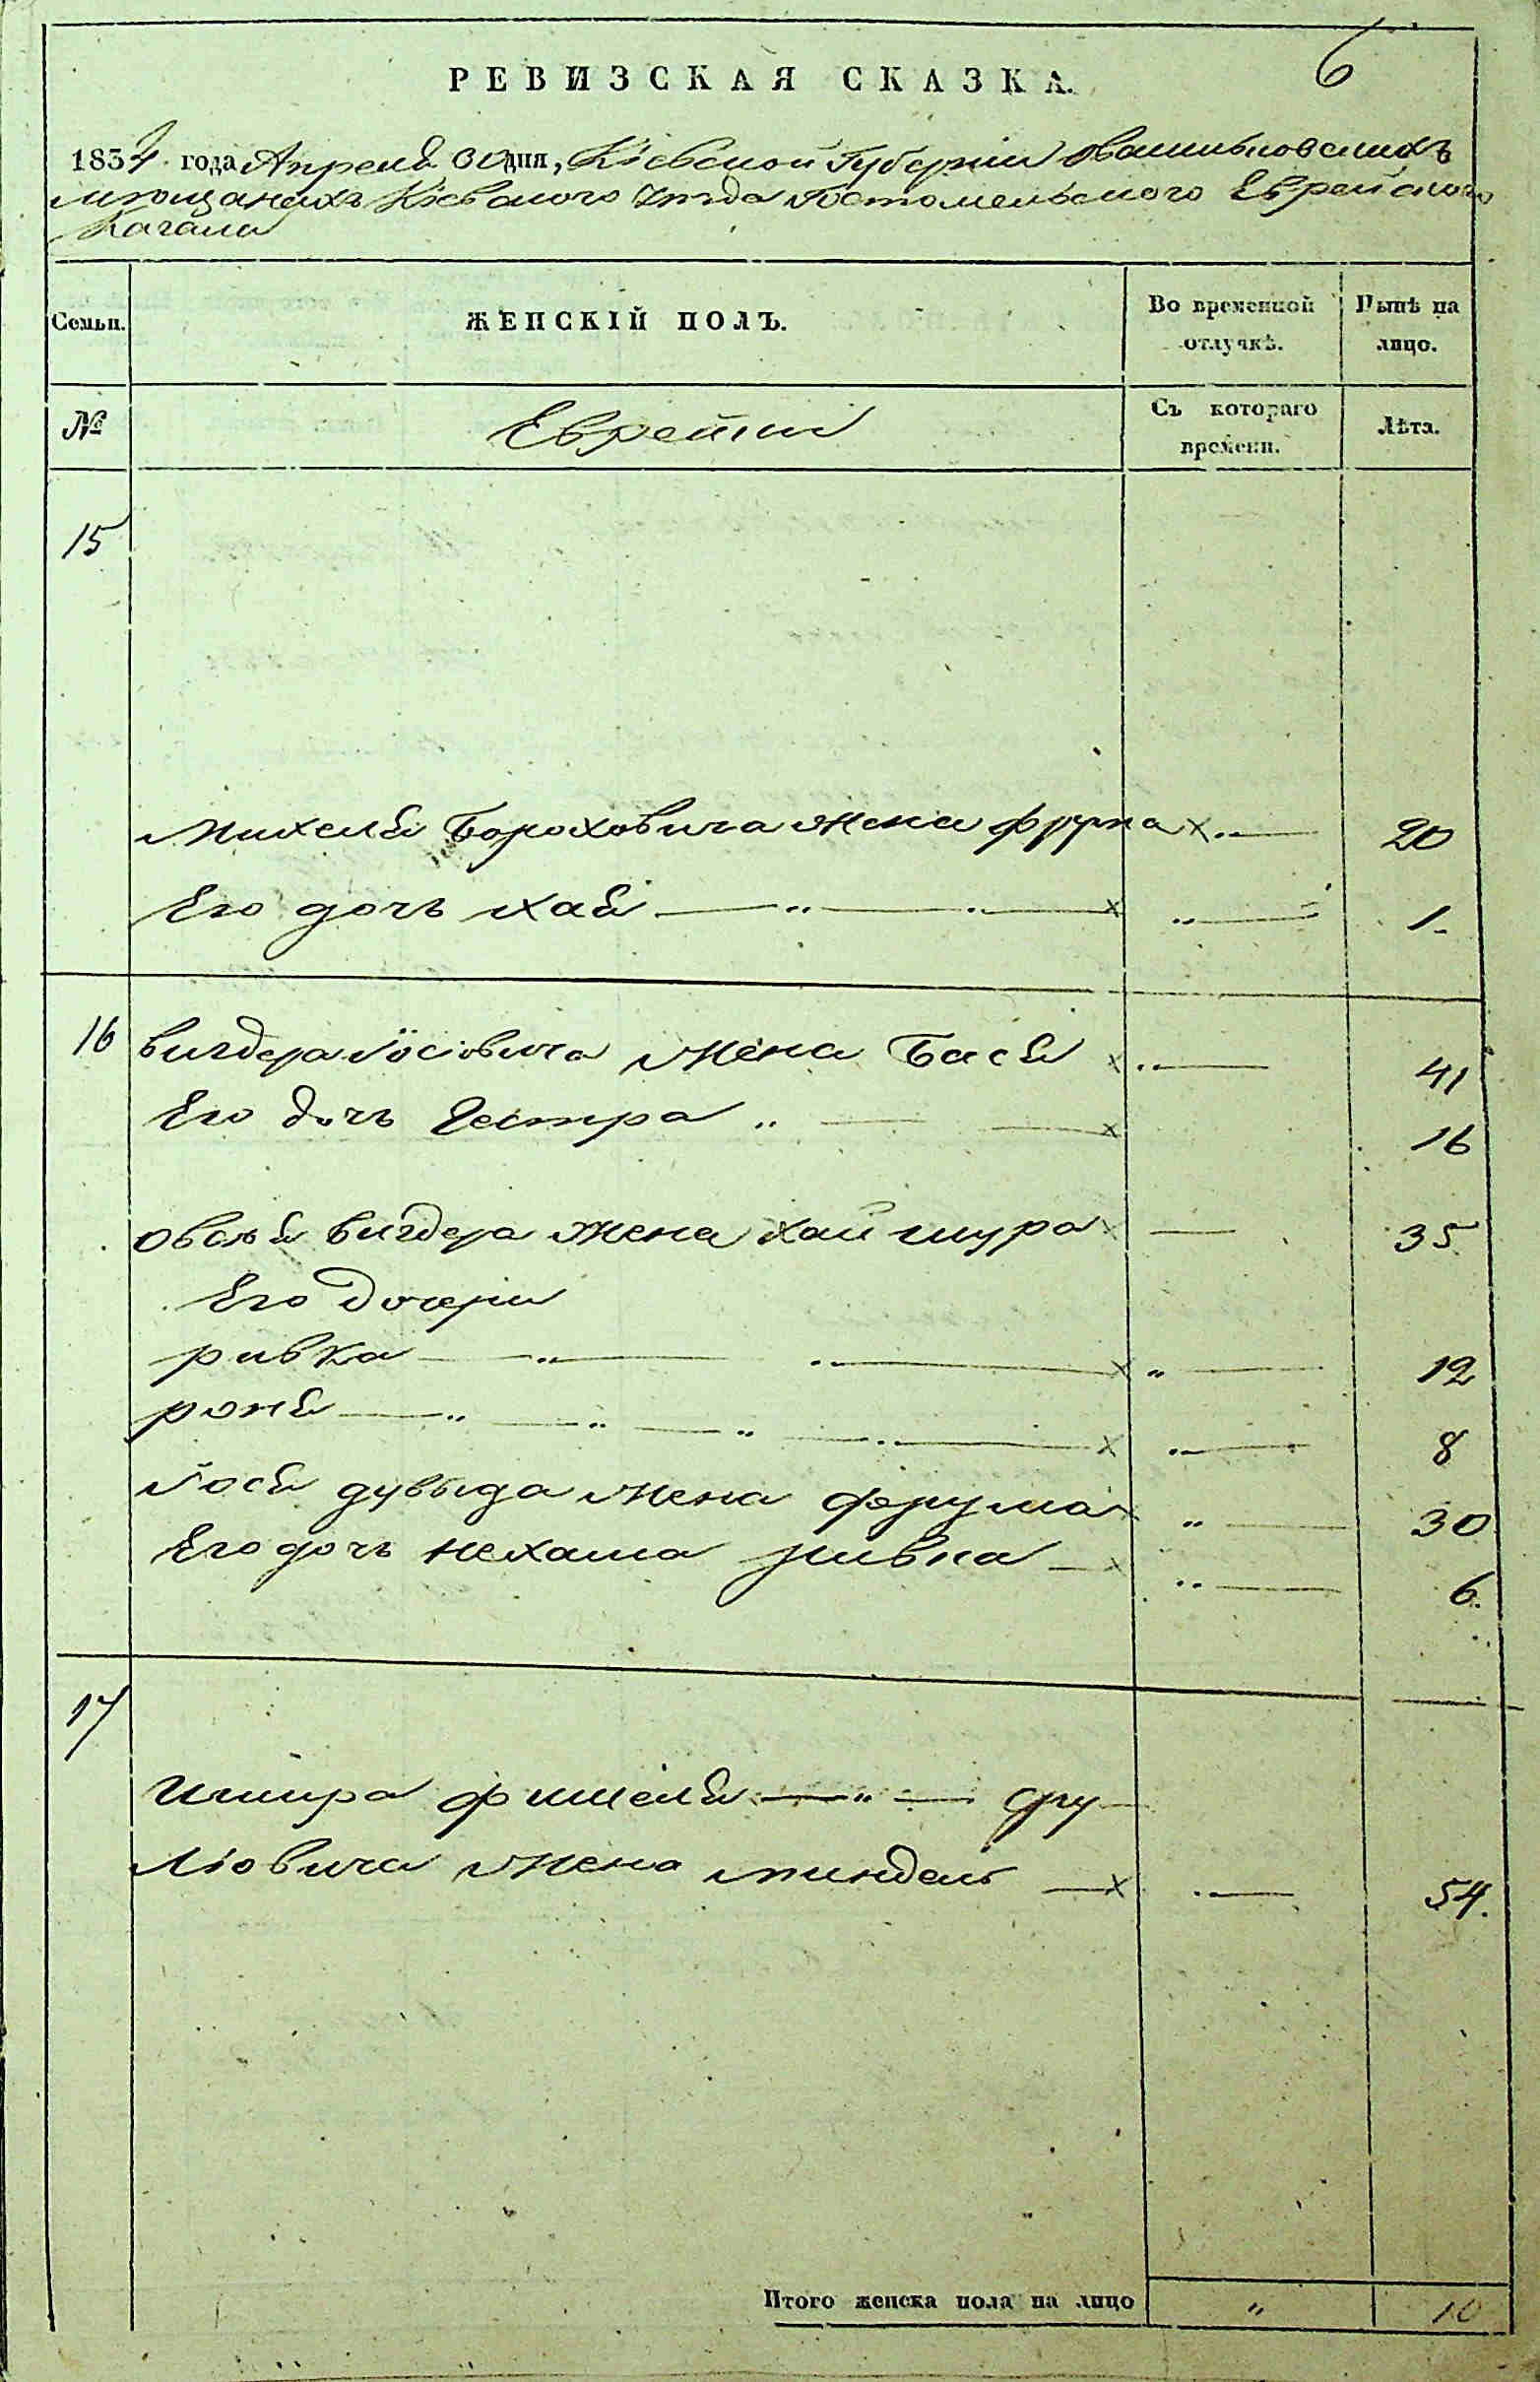 6
РЕВИЗСКАЯ СКАЗКА.
1834 года Апреля 30 дня, Кіевской Губерніи
мещанахъ Кіевского уезда Гостомельского Еврейского
Кагала
Семьи. ЖЕНСКІЙ ПОЛЪ. Во временной отлучкѣ. Нынѣ на лицо.
№ Еврейки Съ котораго времени. Лѣта.
15
Михеля Бороховича жена фрума х 20
Его дочь хая х 1
16 вигдера іосіовича жена Бася х 41
Его дочь Гестра х 16
овсѣя вигдера жена хай шура х 35
Его дочери
ривка х 12
роня х 8
іося дувыда жена фрума х 30
Его дочь нехама ривка х 6.
17
фишеля
жена миндель х 54.
Итого женска пола на лицо " 10